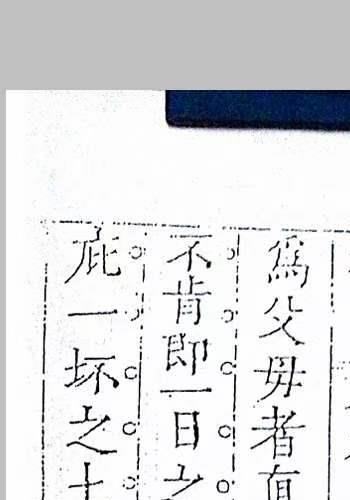 爲父毋者
不肯即一日之
庇一坏之土